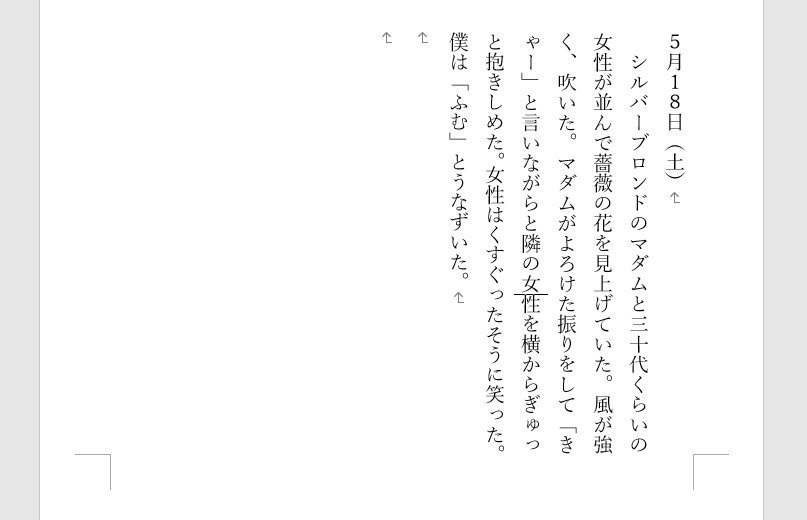 5月18日(土)
　シルバーブロンドのマダムと三十代くらいの
女性が並んで薔薇の花を見上げていた。風が強
く、吹いた。マダムがよろけた振りをして「き
ゃー」と言いながらと隣の女性を横からぎゅっ
と抱きしめた。女性はくすぐったそうに笑った。
僕は「ふむ」とうなずいた。